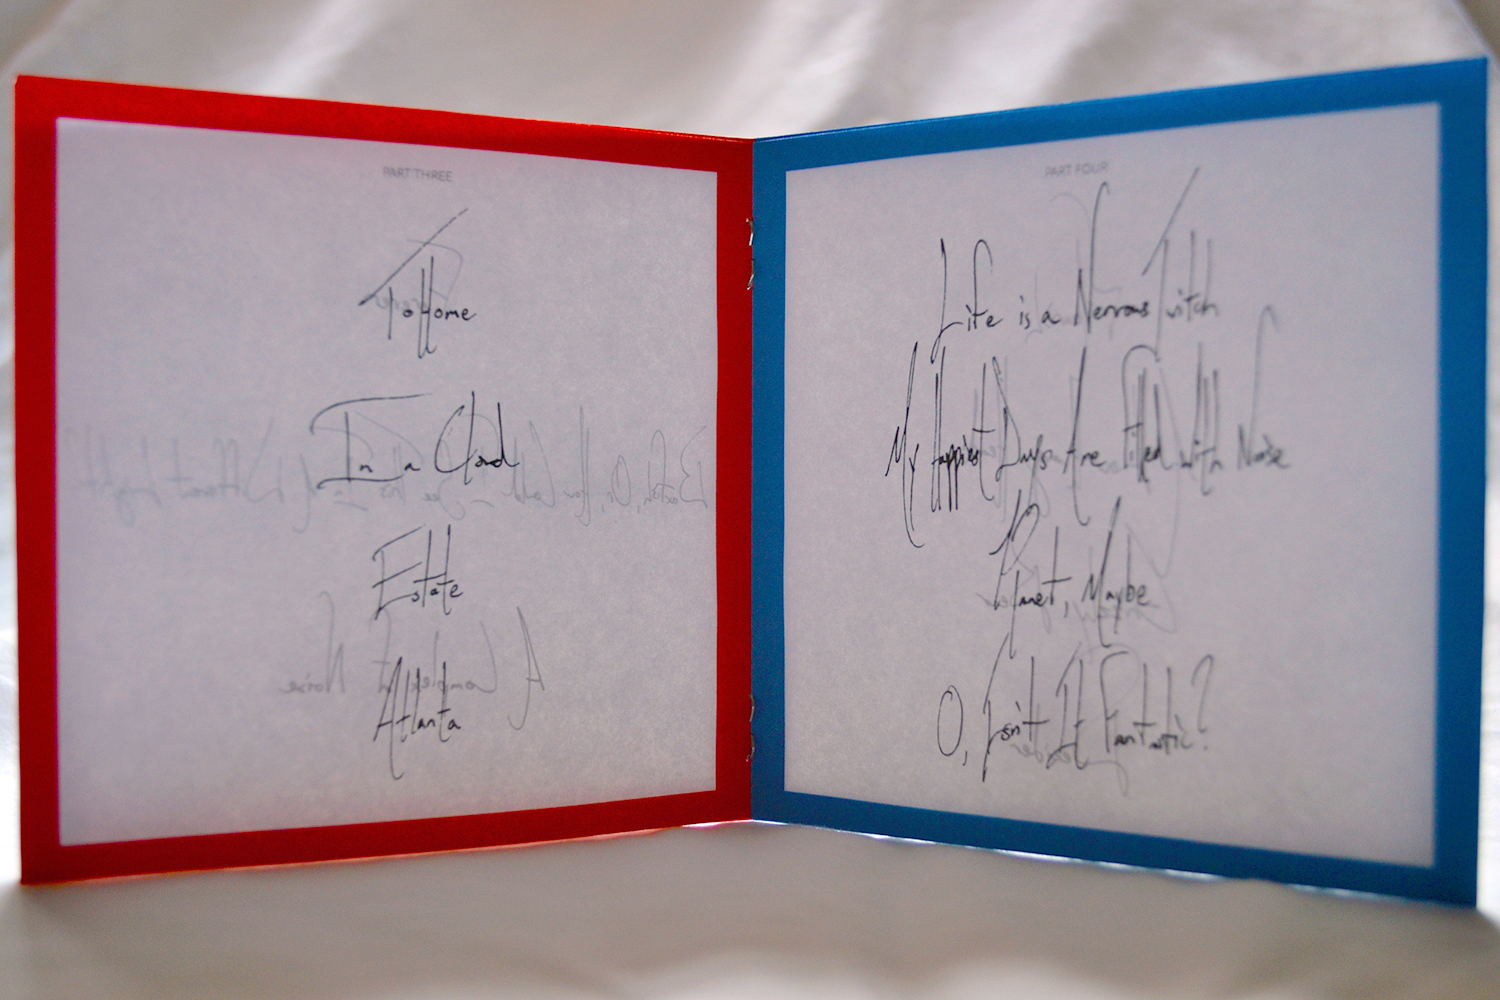 PART THREE
To Home
In a Cloud
Estate
Atlanta
PART FOUR
Life is a Nervous Twitch
My Happiest Days Are Filled with Noise
Planet, Maybe
O, Isn't It Fantastic?
A Complex Noise